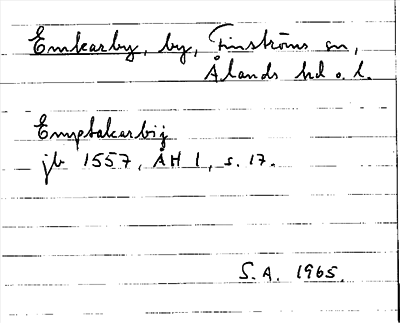 Emkarby, by, Finströms sn,
Ålands hd o. l.
Emptakarbij
jb 1557, ÅH 1, s. 17.
S.A. 1965.